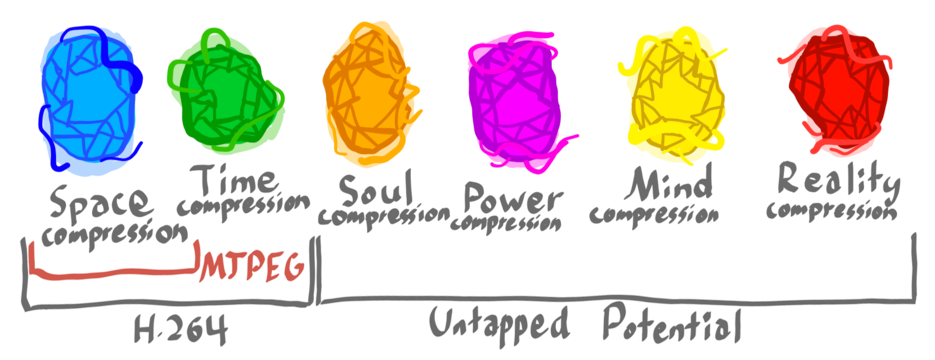 Space
compression
Time
compression
Soul
compression
Power
compression
Mind
compression
Reality
compression
MJPEG
H.264
Untapped Potential